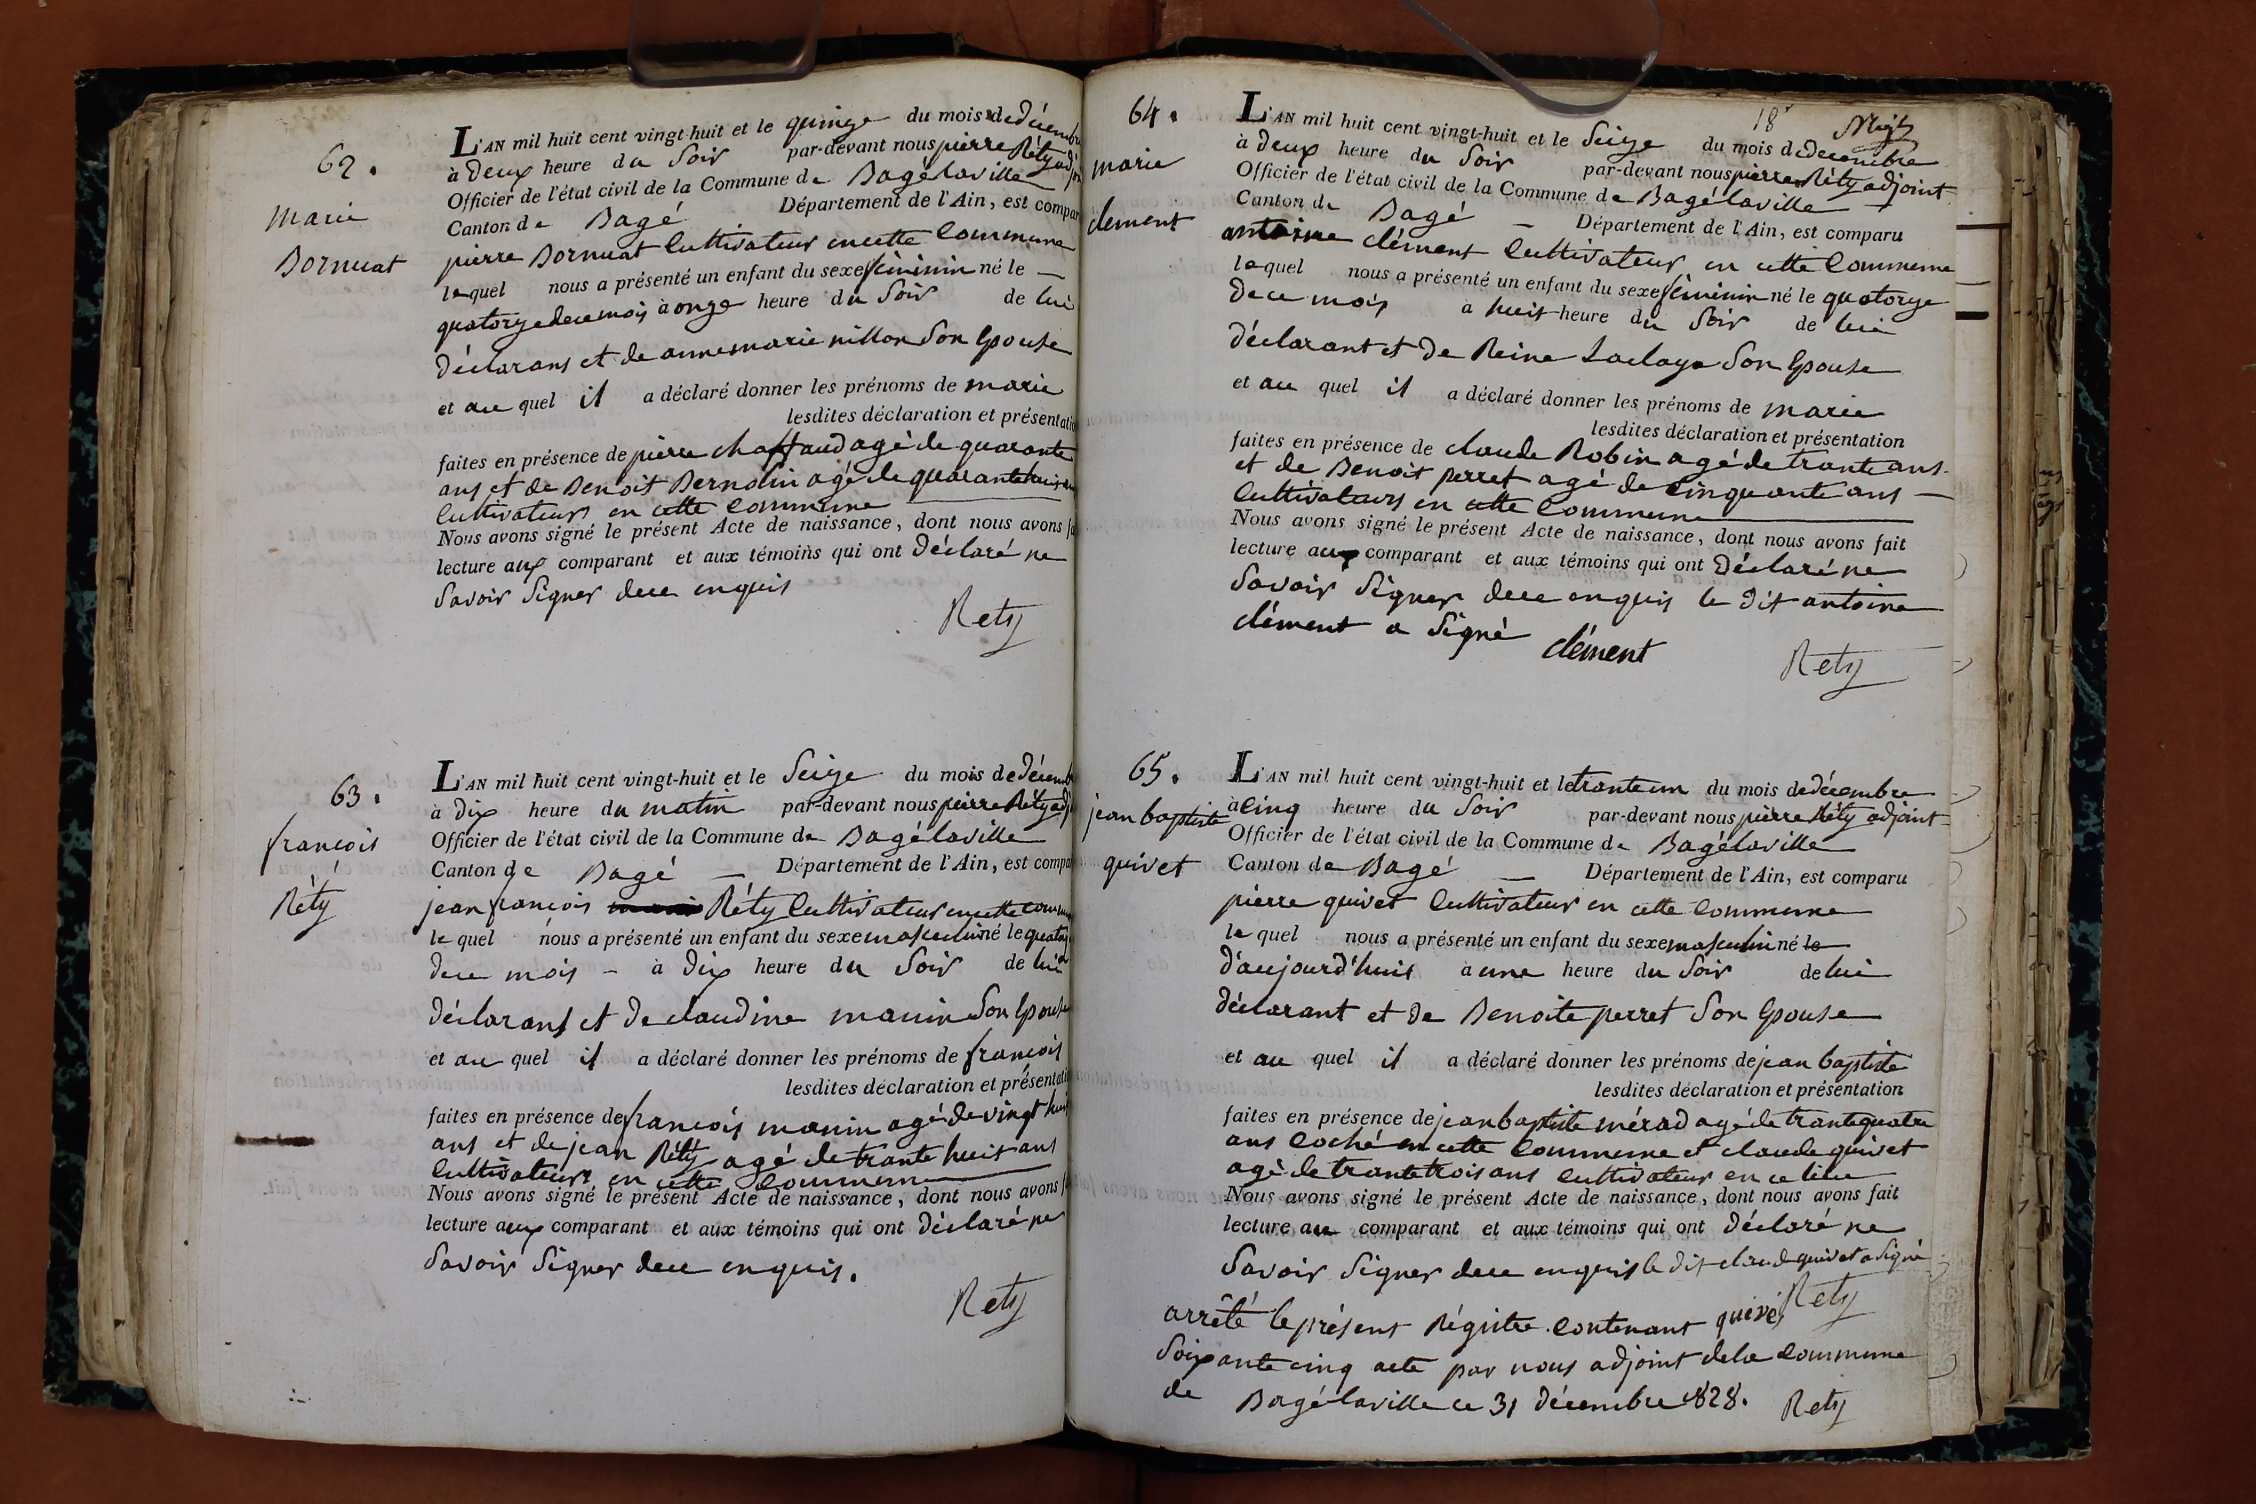 62.
marie
Bornuat
L'AN mil huit cent vingt-huit et le quinze du mois de décembre
à deux heure du Soir par-devant nous pierre Réty adjoint
Officier de l'état civil de la Commune de Bagélaville
Canton de Bagé Département de l'Ain, est compar
pierre Bornuat Cultivateur en cette Commune
lequel nous a présenté un enfant du sexe féminin né le —
quatorze dece mois à onze heure du Soir de lui
déclarans et de anne marie nillon Son Epouse
et au quel il a déclaré donner les prénoms de marie
lesdites déclaration et présentatio
faites en présence de pierre chaffaud agé de quarante
ans et de Benoit Bernolin agé de quarante huit ans
Cultivateurs en cette Commune
Nous avons signé le présent Acte de naissance, dont nous avons fa
lecture aux comparant et aux témoins qui ont déclaré ne
Savoir Signer dece enquis
Rety
63.
françois
Réty
L'AN mil huit cent vingt-huit et le Seize du mois de décemb
à dix heure du matin par-devant nous peirre Réty adj
Officier de l'état civil de la Commune de Bagélaville
Canton de Bagé — Département de l'Ain, est compa
jean françois Réty Cultivateur en cette commu
le quel nous a présenté un enfant du sexe masculin né le quatorz
dece mois - à dix heure du Soir de lui
déclarans et de claudine manin Son Epouse
et au quel il a déclaré donner les prénoms de françois
lesdites déclaration et présentati
faites en présence de françois manin agé de vingt huit
ans et de jean Réty agé de trante huit ans
Cultivateurs en cette Commune
Nous avons signé le présent Acte de naissance, dont nous avons f
lecture aux comparant et aux témoins qui ont déclaré ne
Savoir Signer dece enquis.
Rety
18
64.
marie
clement
L'AN mil huit cent vingt-huit et le Seize du mois de decembre
à deux heure du Soir par-devant nous pierre Réty adjoint
Officier de l'état civil de la Commune de Bagélaville
Canton de Bagé — Département de l'Ain, est comparu
antoine clément Cultivateur en cette Commune
lequel nous a présenté un enfant du sexe féminin né le quatorze
dece mois à huit heure du Soir de lui
déclarant et de Reine Laclaye Son Epouse
et au quel il a déclaré donner les prénoms de marie
lesdites déclaration et présentation
faites en présence de claude Robin agé de trante ans
et de Benoit perret agé de Cinquante ans —
Cultivateurs en cette Commune
Nous avons signé le présent Acte de naissance, dont nous avons fait
lecture aux comparant et aux témoins qui ont déclaré ne
Savoir Signer dece enquis le dit antoine
clément a Signé clément
Rety
65.
jean baptiste
quivet
L'AN mil huit cent vingt-huit et le trante un du mois de décembre
à cinq heure du Soir par-devant nous pierre Réty adjoint
Officier de l'état civil de la Commune de Bagélaville
Canton de Bagé — Département de l'Ain, est comparu
pierre quivet Cultivateur en cette Commune
le quel nous a présenté un enfant du sexe masculin né le
d'aujourd'huit à une heure du Soir de lui
déclarant et de Benoite perret Son Epouse
et au quel il a déclaré donner les prénoms de jean baptiste
lesdites déclaration et présentation
faites en présence de jean baptiste mérad agé de trante quatre
ans Coché en cette Commune et claude quivet
agé de trante trois ans Cultivateur en ce lieu
Nous avons signé le présent Acte de naissance, dont nous avons fait
lecture au comparant et aux témoins qui ont déclaré ne
Savoir Signer dece enquis le dit claude quivet a Signé
quivet Rety
arrêté le présent Régistre contenant
Soixante cinq acte par nous adjoint dela Commune
de Bagélaville ce 31 décembre 1828. Rety